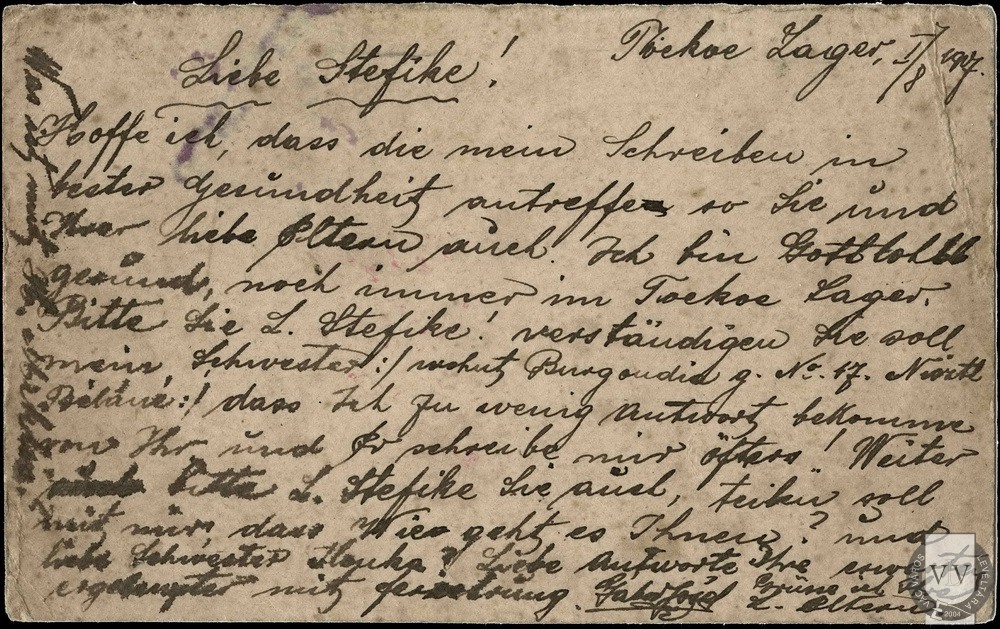 Tockoe Lager, I/8 1917.
Liebe Stefike!
Hoffe ich, dass die mein Schreiben in
bester Gesundheit antreffen so Sie und
Ihrer liebe Eltern auch. Ich bin Gottlob
gesund, noch immer im Tockoe Lager.
Bitte Sie L. Stefike! verständigen Sie soll
mein Schwester :/ wohnt Burgundia g. No. 17.
Béláné :/ dass Ich zu wenig Antwort bekomme
von Ihr und Er schreibe mir öfters! Weiter
bitte L. Stefike Sie auch, teilen soll
mit mir, dass Wie geht es Ihnen? und
liebe Schwester Ilonka? Liebe Antworte Ihre
ergebenster mit
Grüsse ich
L. Eltern
VÁC VÁROS LEVÉLTÁRA
VV
2004